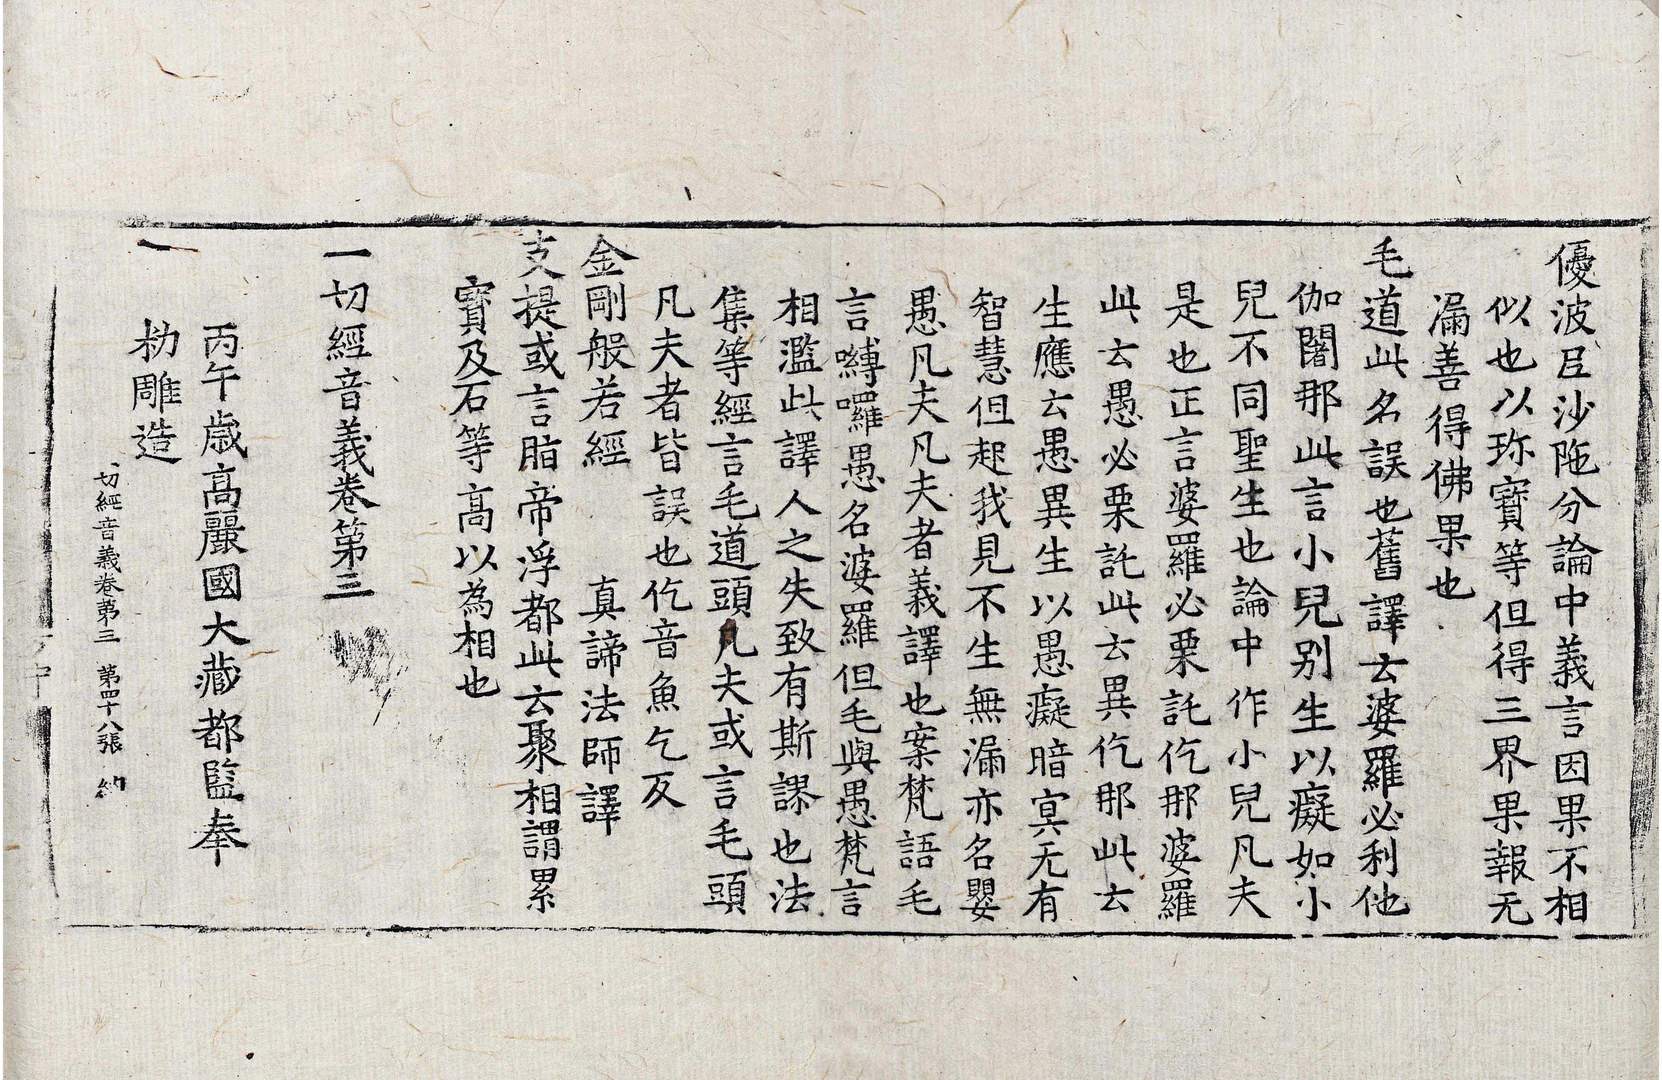 優波𭅺沙陁分論中義言因果不相
似也以珎寶等但得三界果報无
漏善得佛果也
毛道此名誤也舊譯云婆羅必利他
伽闍那此言小兒别生以癡如小
兒不同聖生也論中作小兒凡夫
是也正言婆羅必栗託仡那婆羅
此云愚必栗託此云異仡那此云
生應云愚異生以愚癡暗冥无有
智慧但起我見不生無漏亦名嬰
愚凡夫凡夫者義譯也案梵語毛
言嚩囉愚名婆羅但毛與愚梵言
相濫此譯人之失致有斯謬也法
集等經言毛道頭凡夫或言毛頭
凡夫者皆誤也仡音魚乞反
金剛般若經 真諦法師譯
支提或言脂帝浮都此云聚相謂累
寶及石等高以為相也
一切經音義卷第三
丙午歳高麗國大藏都監奉
勑雕造
一切經音義卷第三 第四十八張 納